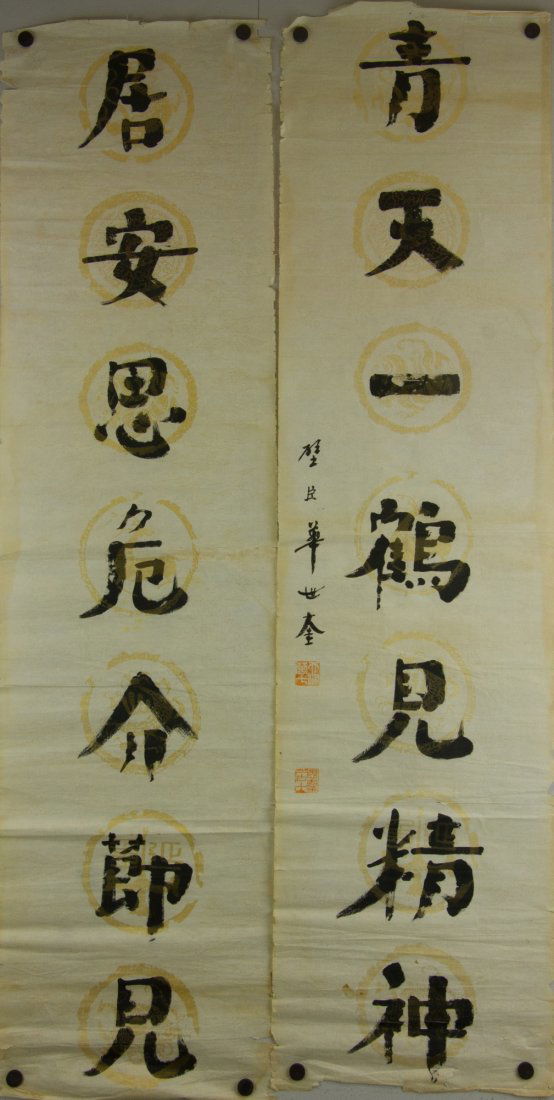 青天一鶴見精神
壁臣華世奎
居安思危介節見